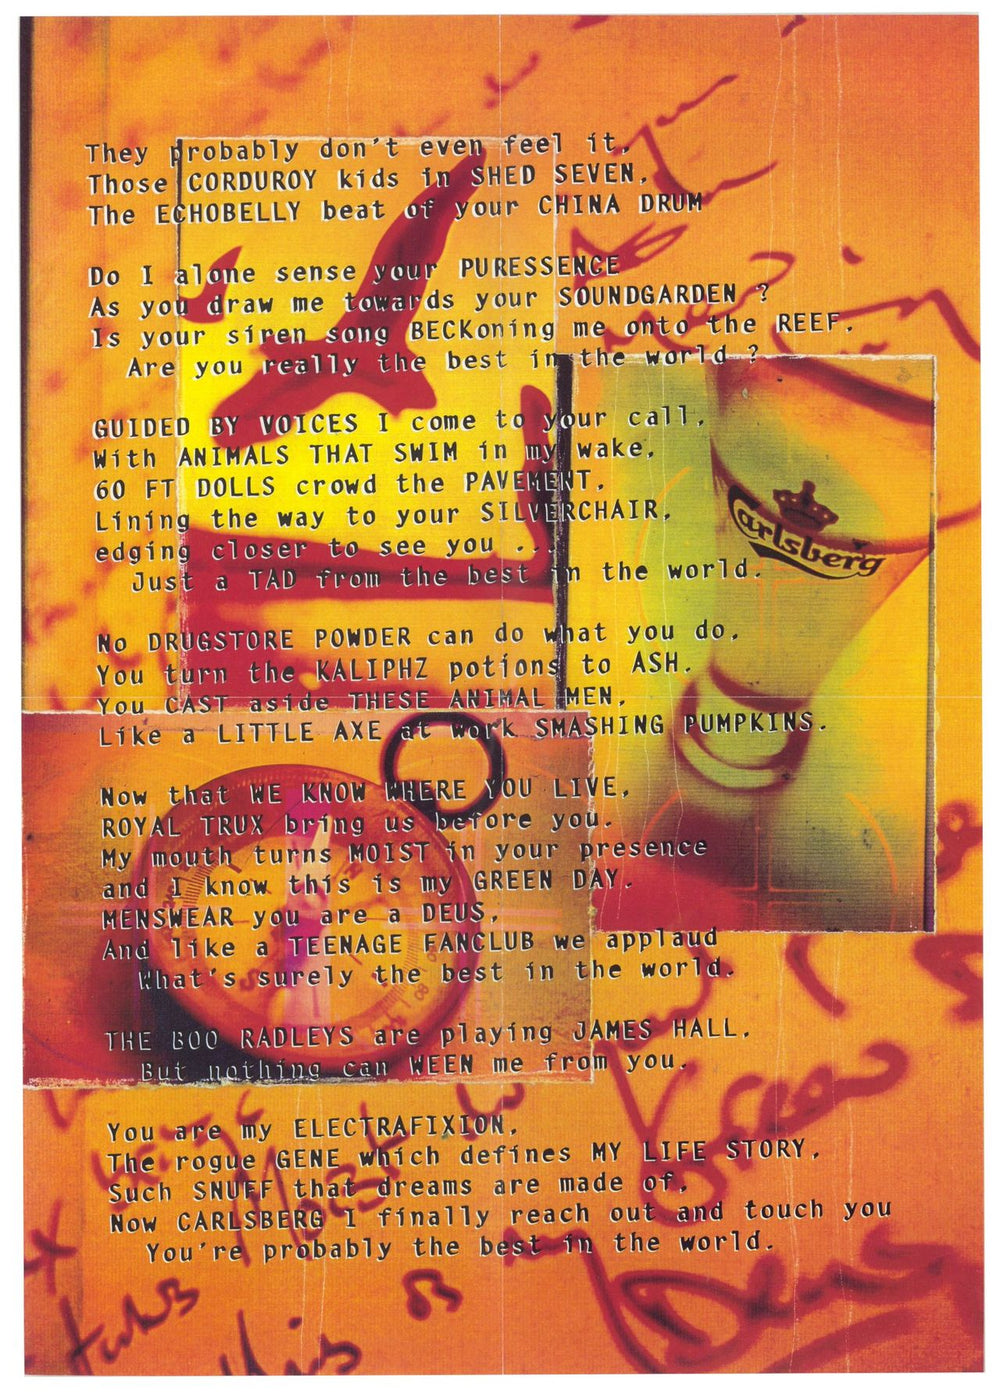 They probably don't even feel it,
Those CORDUROY kids in SHED SEVEN,
The ECHOBELLY beat of your CHINA DRUM
Do I alone sense your PURESSENCE
As you draw me towards your SOUNDGARDEN ?
Is your siren song BECKoning me onto the REEF,
Are you really the best in the world ?
GUIDED BY VOICES I come to your call,
With ANIMALS THAT SWIM in my wake,
60 FT DOLLS crowd the PAVEMENT,
Lining the way to your SILVERCHAIR,
edging closer to see you ...
Just a TAD from the best in the world.
Carlsberg
No DRUGSTORE POWDER can do what you do,
You turn the KALIPHZ potions to ASH.
You CAST aside THESE ANIMAL MEN,
Like a LITTLE AXE at work SMASHING PUMPKINS.
Now that WE KNOW WHERE YOU LIVE,
ROYAL TRUX bring us before you.
My mouth turns MOIST in your presence
and I know this is my GREEN DAY.
MENSWEAR you are a DEUS,
And like a TEENAGE FANCLUB we applaud
What's surely the best in the world.
THE BOO RADLEYS are playing JAMES HALL,
But nothing can WEEN me from you.
You are my ELECTRAFIXION,
The rogue GENE which defines MY LIFE STORY,
Such SNUFF that dreams are made of,
Now CARLSBERG I finally reach out and touch you
You're probably the best in the world.